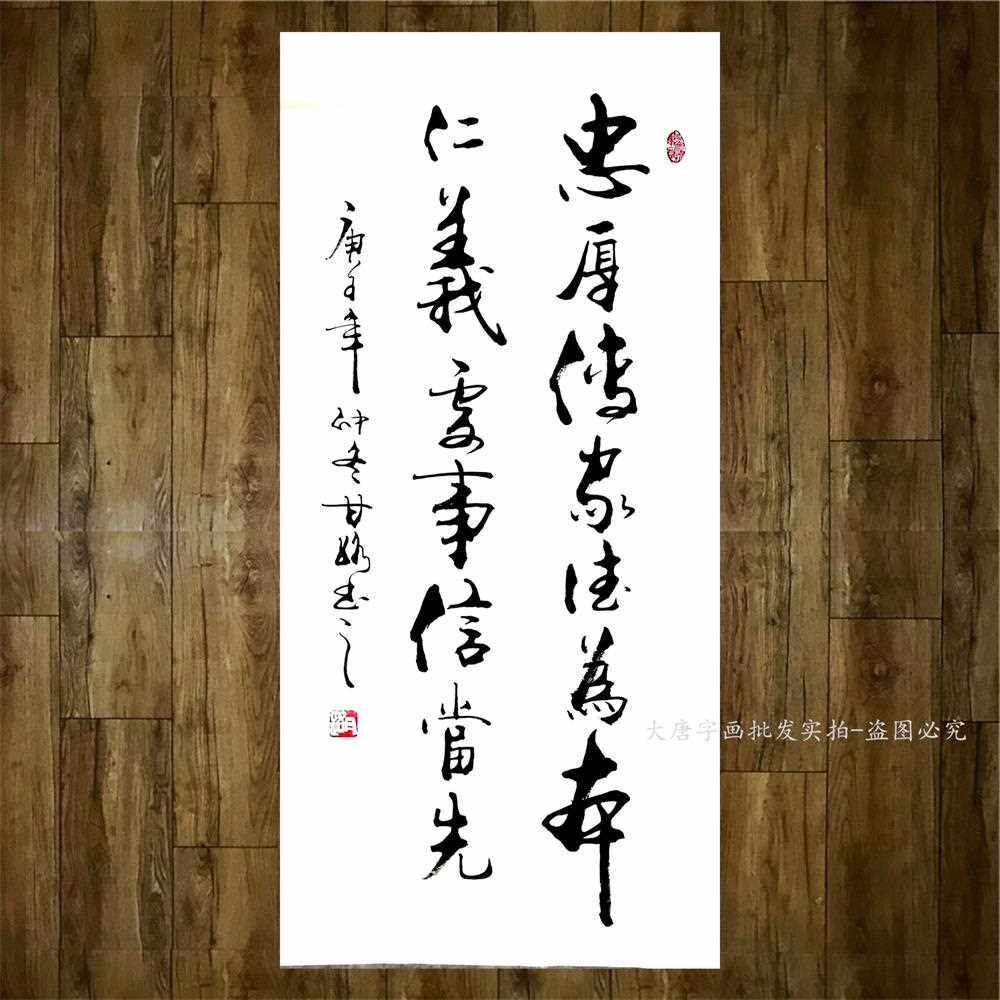 忠厚傳家德為本
仁義處事信當先
庚子年仲冬甘露書之
大唐字画批发实拍-盗图必究